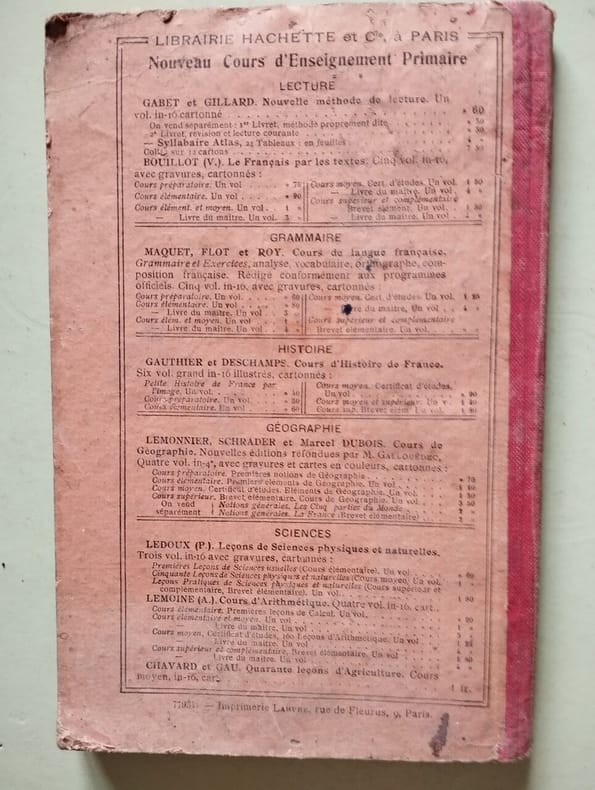 LIBRAIRIE HACHETTE et Cie, à PARIS
Nouveau Cours d'Enseignement Primaire
LECTURE
GABET et GILLARD. Nouvelle méthode de lecture. Un
vol. in-16 cartonné . . . » 60
On vend séparément : 1er Livret, méthode proprement dite
2e Livret, révision et lecture courante
— Syllabaire Atlas, 25 Tableaux : en feuilles
sur 12 cartons
BOUILLOT (V.). Le Français par les textes. Cinq vol. in-16,
avec gravures, cartonnés :
Cours préparatoire. Un vol . . . » 75
Cours élémentaire. Un vol . . . » 90
Cours élément. et moyen. Un vol. 1 »
— Livre du maître. Un vol. 3 »
Cours moyen. Cert. d'études. Un vol.
— Livre du maître. Un vol.
Cours supérieur et complémentaire
Brevet élément. Un vol.
— Livre du maître. Un vol.
GRAMMAIRE
MAQUET, FLOT et ROY. Cours de langue française.
Grammaire et Exercices, analyse, vocabulaire, orthographe, com-
position française. Rédigé conformément aux programmes
officiels. Cinq vol. in-16, avec gravures, cartonnés :
Cours préparatoire. Un vol. . . » 60
Cours élémentaire. Un vol. . . » 80
— Livre du maître. Un vol.
Cours élém. et moyen. Un vol.
— Livre du maître. Un vol.
Cours moyen. Cert. d'études. Un vol.
— Livre du maître, Un vol.
Cours supérieur et complémentaire
Brevet élémentaire. Un vol.
HISTOIRE
GAUTHIER et DESCHAMPS. Cours d'Histoire de France.
Six vol. grand in-16 illustrés, cartonnés :
Petite Histoire de France par
l'image. Un vol.
Cours préparatoire. Un vol.
Cours élémentaire. Un vol . . . » 60
Cours moyen. Certificat d'études.
Un vol . . . » 90
Cours moyen et supérieur. Un v.
Cours sup. Brevet élém. Un vol.
GÉOGRAPHIE
LEMONNIER, SCHRADER et Marcel DUBOIS. Cours de
Géographie. Nouvelles éditions refondues par M. GALLOUÉDEC,
Quatre vol. in-4°, avec gravures et cartes en couleurs, cartonnés :
Cours préparatoire. Premières notions de Géographie
Cours élémentaire. Premiers éléments de Géographie. Un vol.
Cours moyen. Certificat d'études. Eléments de Géographie. Un vol.
Cours supérieur. Brevet élémentaire. Cours de Géographie. Un vol.
On vend séparément
Notions générales. Les Cinq parties du Monde
Notions générales. La France (Brevet élémentaire)
SCIENCES
LEDOUX (P.). Leçons de Sciences physiques et naturelles.
Trois vol. in-16 avec gravures, cartonnés :
Premières Leçons de Sciences usuelles (Cours élémentaire). Un vol.
Cinquante Leçons de Sciences physiques et naturelles (Cours moyen). Un vol.
Leçons Pratiques de Sciences physiques et naturelles (Cours supérieur et
complémentaire, Brevet élémentaire). Un vol.
LEMOINE (A.). Cours d'Arithmétique. Quatre vol. in-16, cart.
Cours élémentaire. Premières leçons de Calcul. Un vol.
Cours élémentaire et moyen. Un vol.
Livre du maître. Un vol
Cours moyen, Certificat d'études, 160 Leçons d'Arithmétique. Un vol
Livre du maître. Un vol
Cours supérieur et complémentaire, Brevet élémentaire. Un vol.
Livre du maître. Un vol
CHAVARD et GAU. Quarante leçons d'Agriculture. Cours
moyen, in-16, cart. . . . 1 fr.
— Imprimerie LAHURE, rue de Fleurus, 9, Paris.